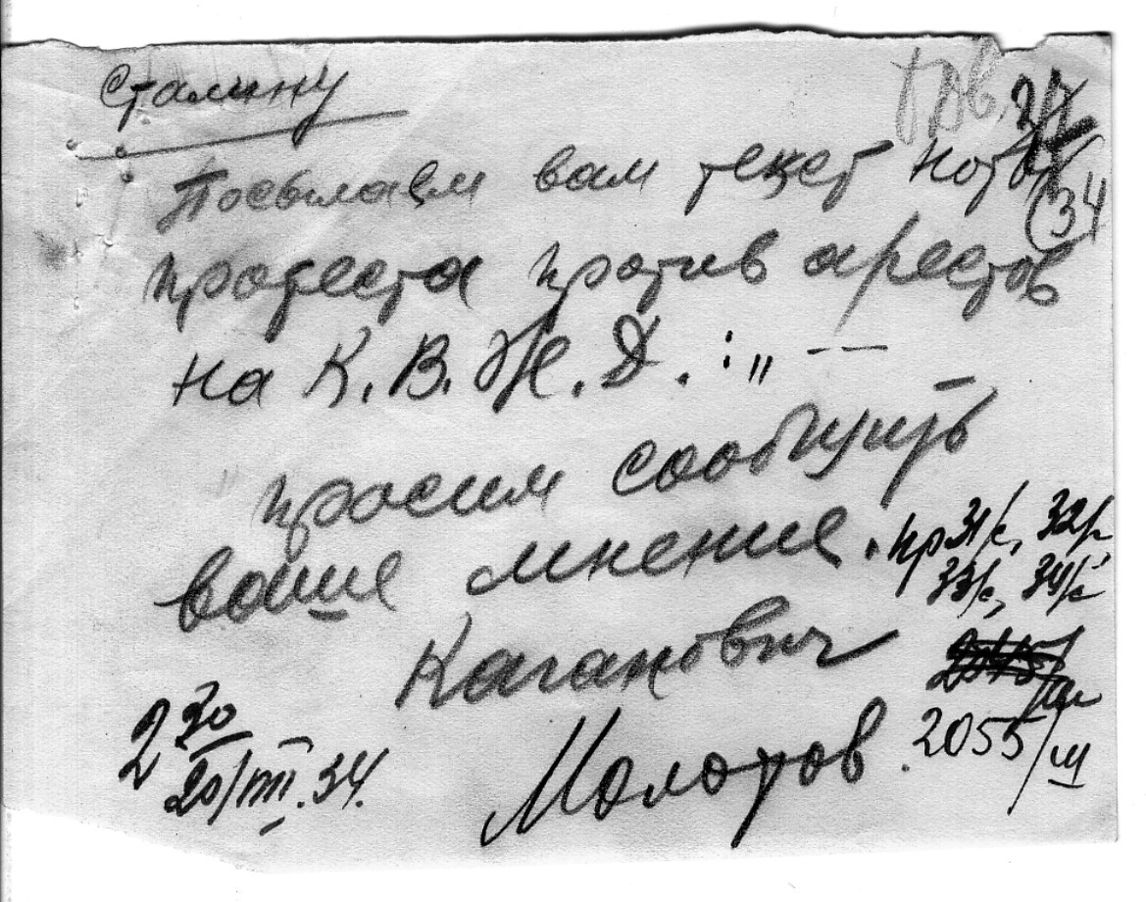 Сталину
27
Посылаем вам текст ноты
34
протеста против арестов
на К.В.Ж.Д. :„ ——
просим сообщить
ваше мнение.
пр 31/с, 32/с,
33/с, 34/с
Каганович
Молотов.
2055/ш
2 30
20/VIII.34.